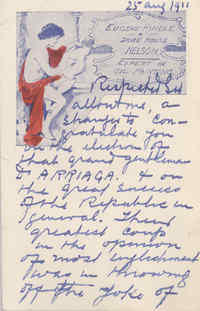 25 aug 1911
EUGENE HINKLE
DADRE HOUSE
NELSON,
EXPERT IN
OIL
Respected Sir
allow me, a
stranger to con-
gratulate you
in the election of
that grand gentleman
ARRIAGA. & on
the great success
of the Republic in
general. Their
greatest coup
in the opinion
of most
was in throwing
off the yoke of